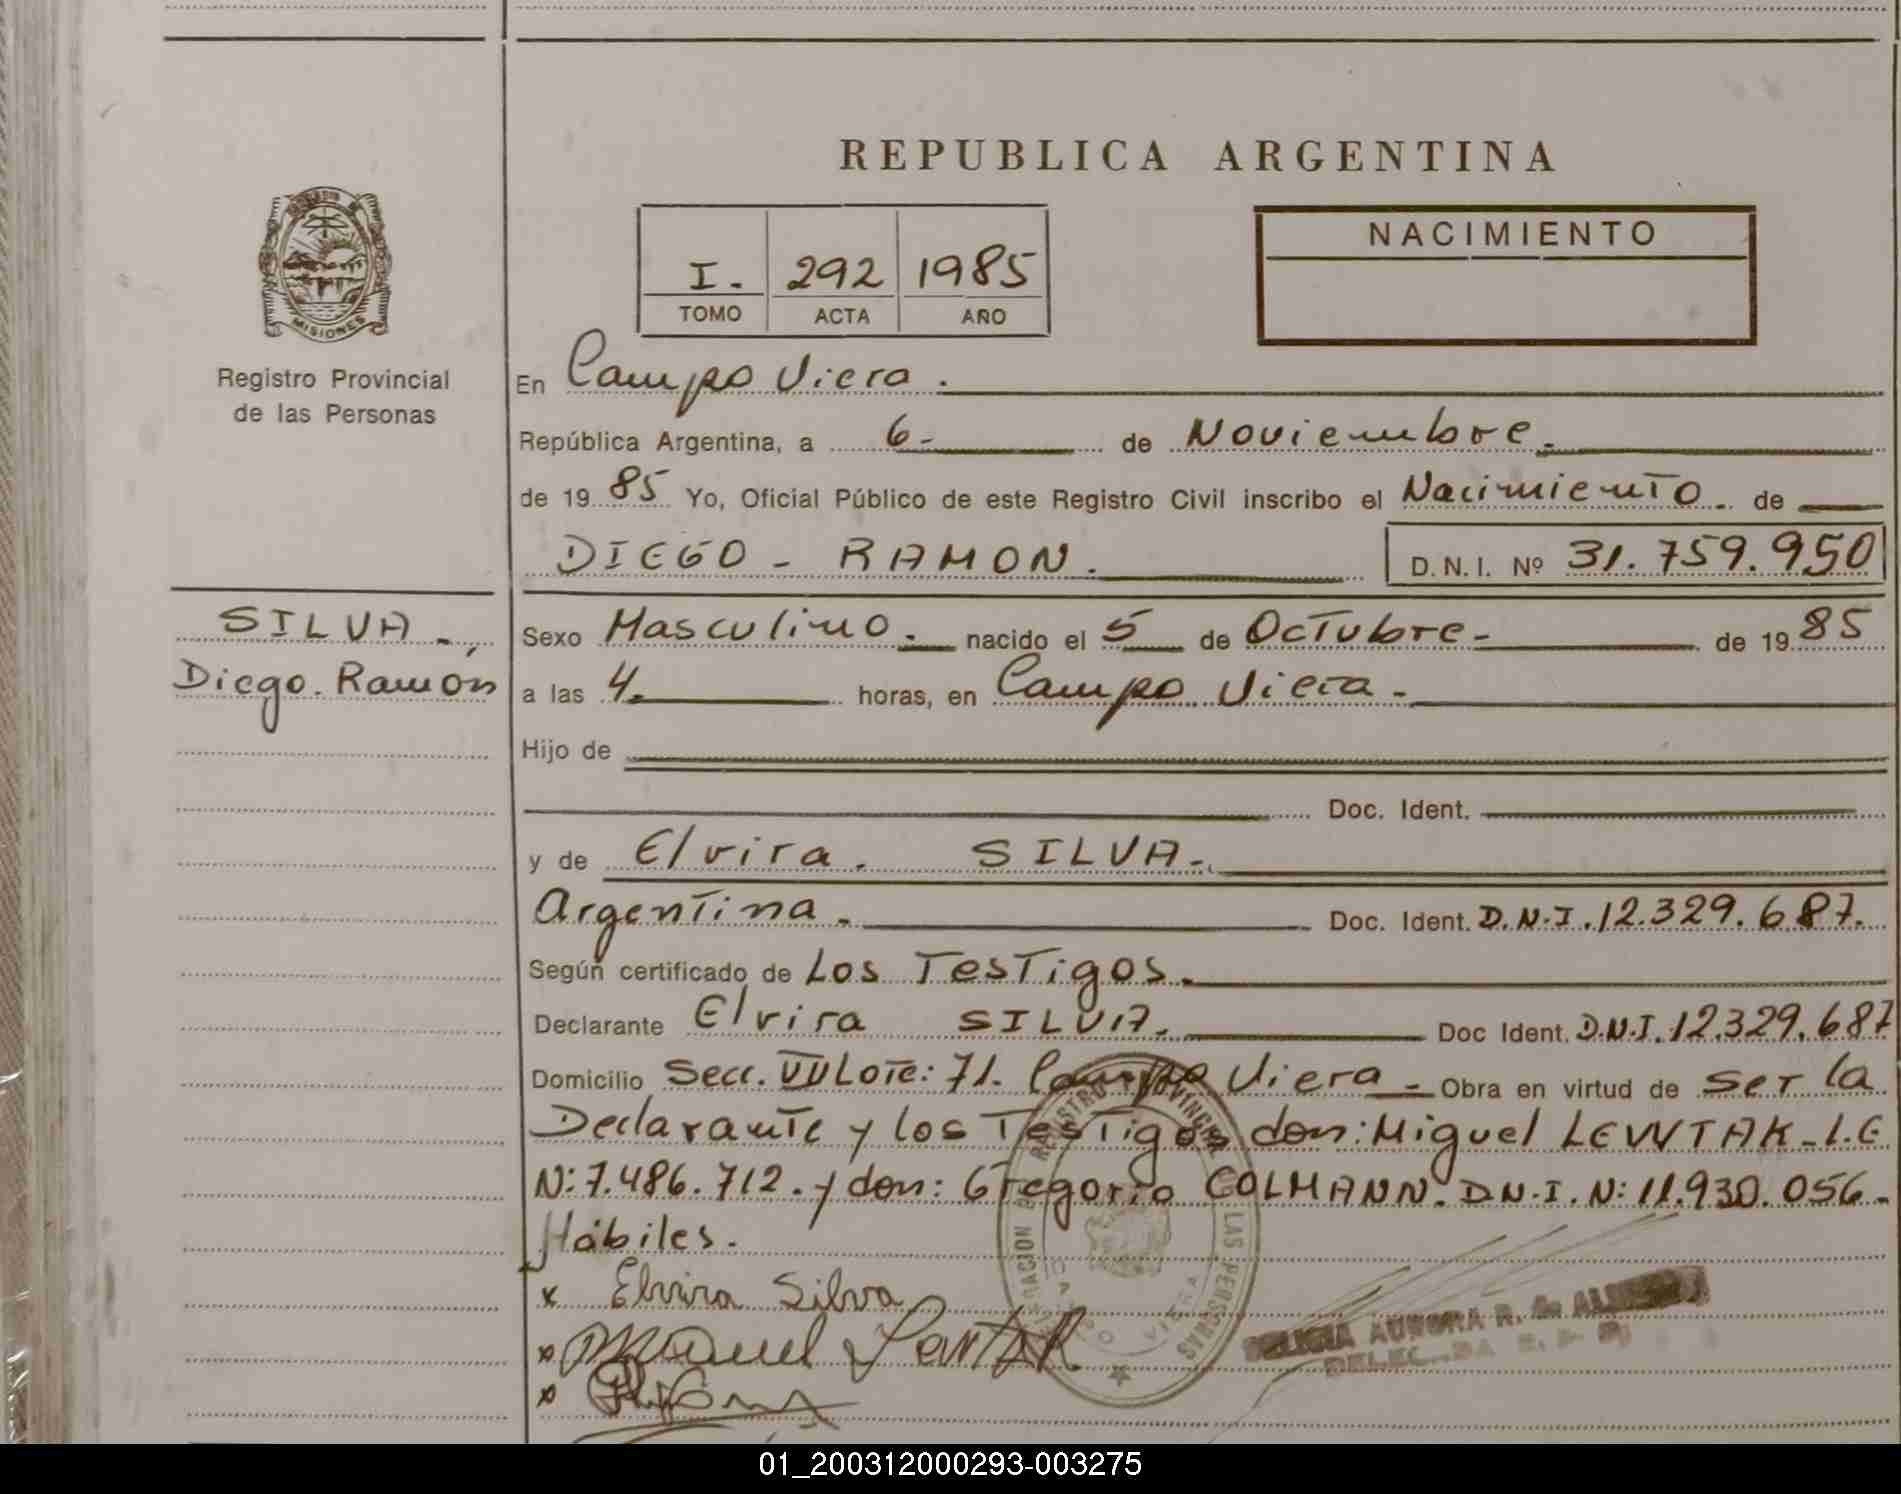 REPUBLICA ARGENTINA
NACIMIENTO
I. 292 1985
TOMO ACTA AÑO
MISIONES
Registro Provincial
de las Personas
En Campo Viera.
República Argentina, a 6- de Noviembre.
de 1985 Yo, Oficial Público de este Registro Civil inscribo el Nacimiento. de
DIEGO - RAMON. D.N.I. Nº 31.759.950
SILVA.,
Diego. Ramón
Sexo Masculino. nacido el 5 de Octubre- de 1985
a las 4. horas, en Campo Viera.
Hijo de
Doc. Ident.
y de Elvira. SILVA.
Argentina. Doc. Ident. D.N.I.12.329.687.
Según certificado de Los Testigos.
Declarante Elvira SILVA. Doc Ident. D.N.I.12.329.687
Domicilio Secc. VII Lote: 71. Campo Viera- Obra en virtud de ser la
Declarante y los Testigos don: Miguel LEWTAK-L.E
N:7.486.712. y don: Gregorio COLMANN. D.N.I. N:11.930.056-
Hábiles.
x Elvira Silva
x
x
LAS PERSONAS
CAMPO VIERA
AURORA R. de
01_200312000293-003275